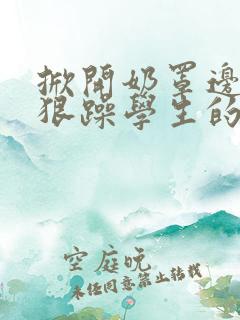 掀開奶罩邊
狠躁學生的
空庭晚
未经同意禁止转载